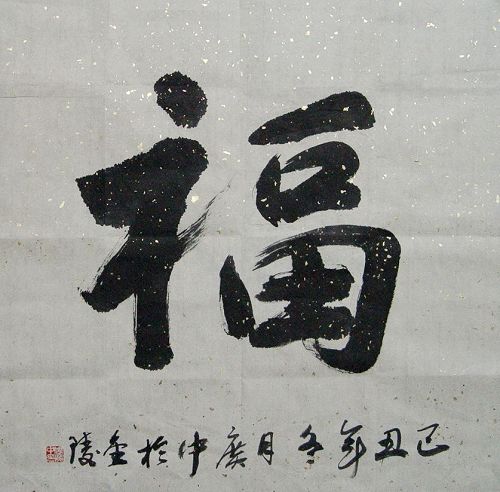 福
己丑年冬月广中於金陵